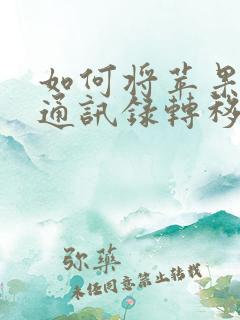 如何将苹果
通訊録轉移
弥藥
未经同意禁止转载